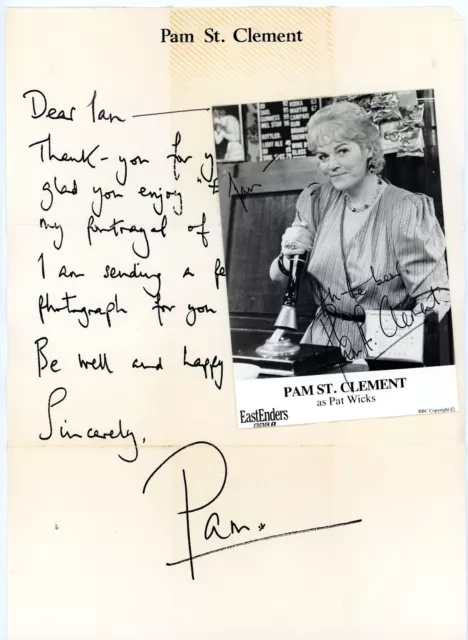 Pam St. Clement
Dear Ian
Thank-you for y
glad you enjoy "E
my portrayal of
I am sending a fe
photograph for you
Be well and happy
Sincerely,
Pam.
Ian
Pam St. Clement
PAM ST. CLEMENT
as Pat Wicks
EastEnders
BBC Copyright ©